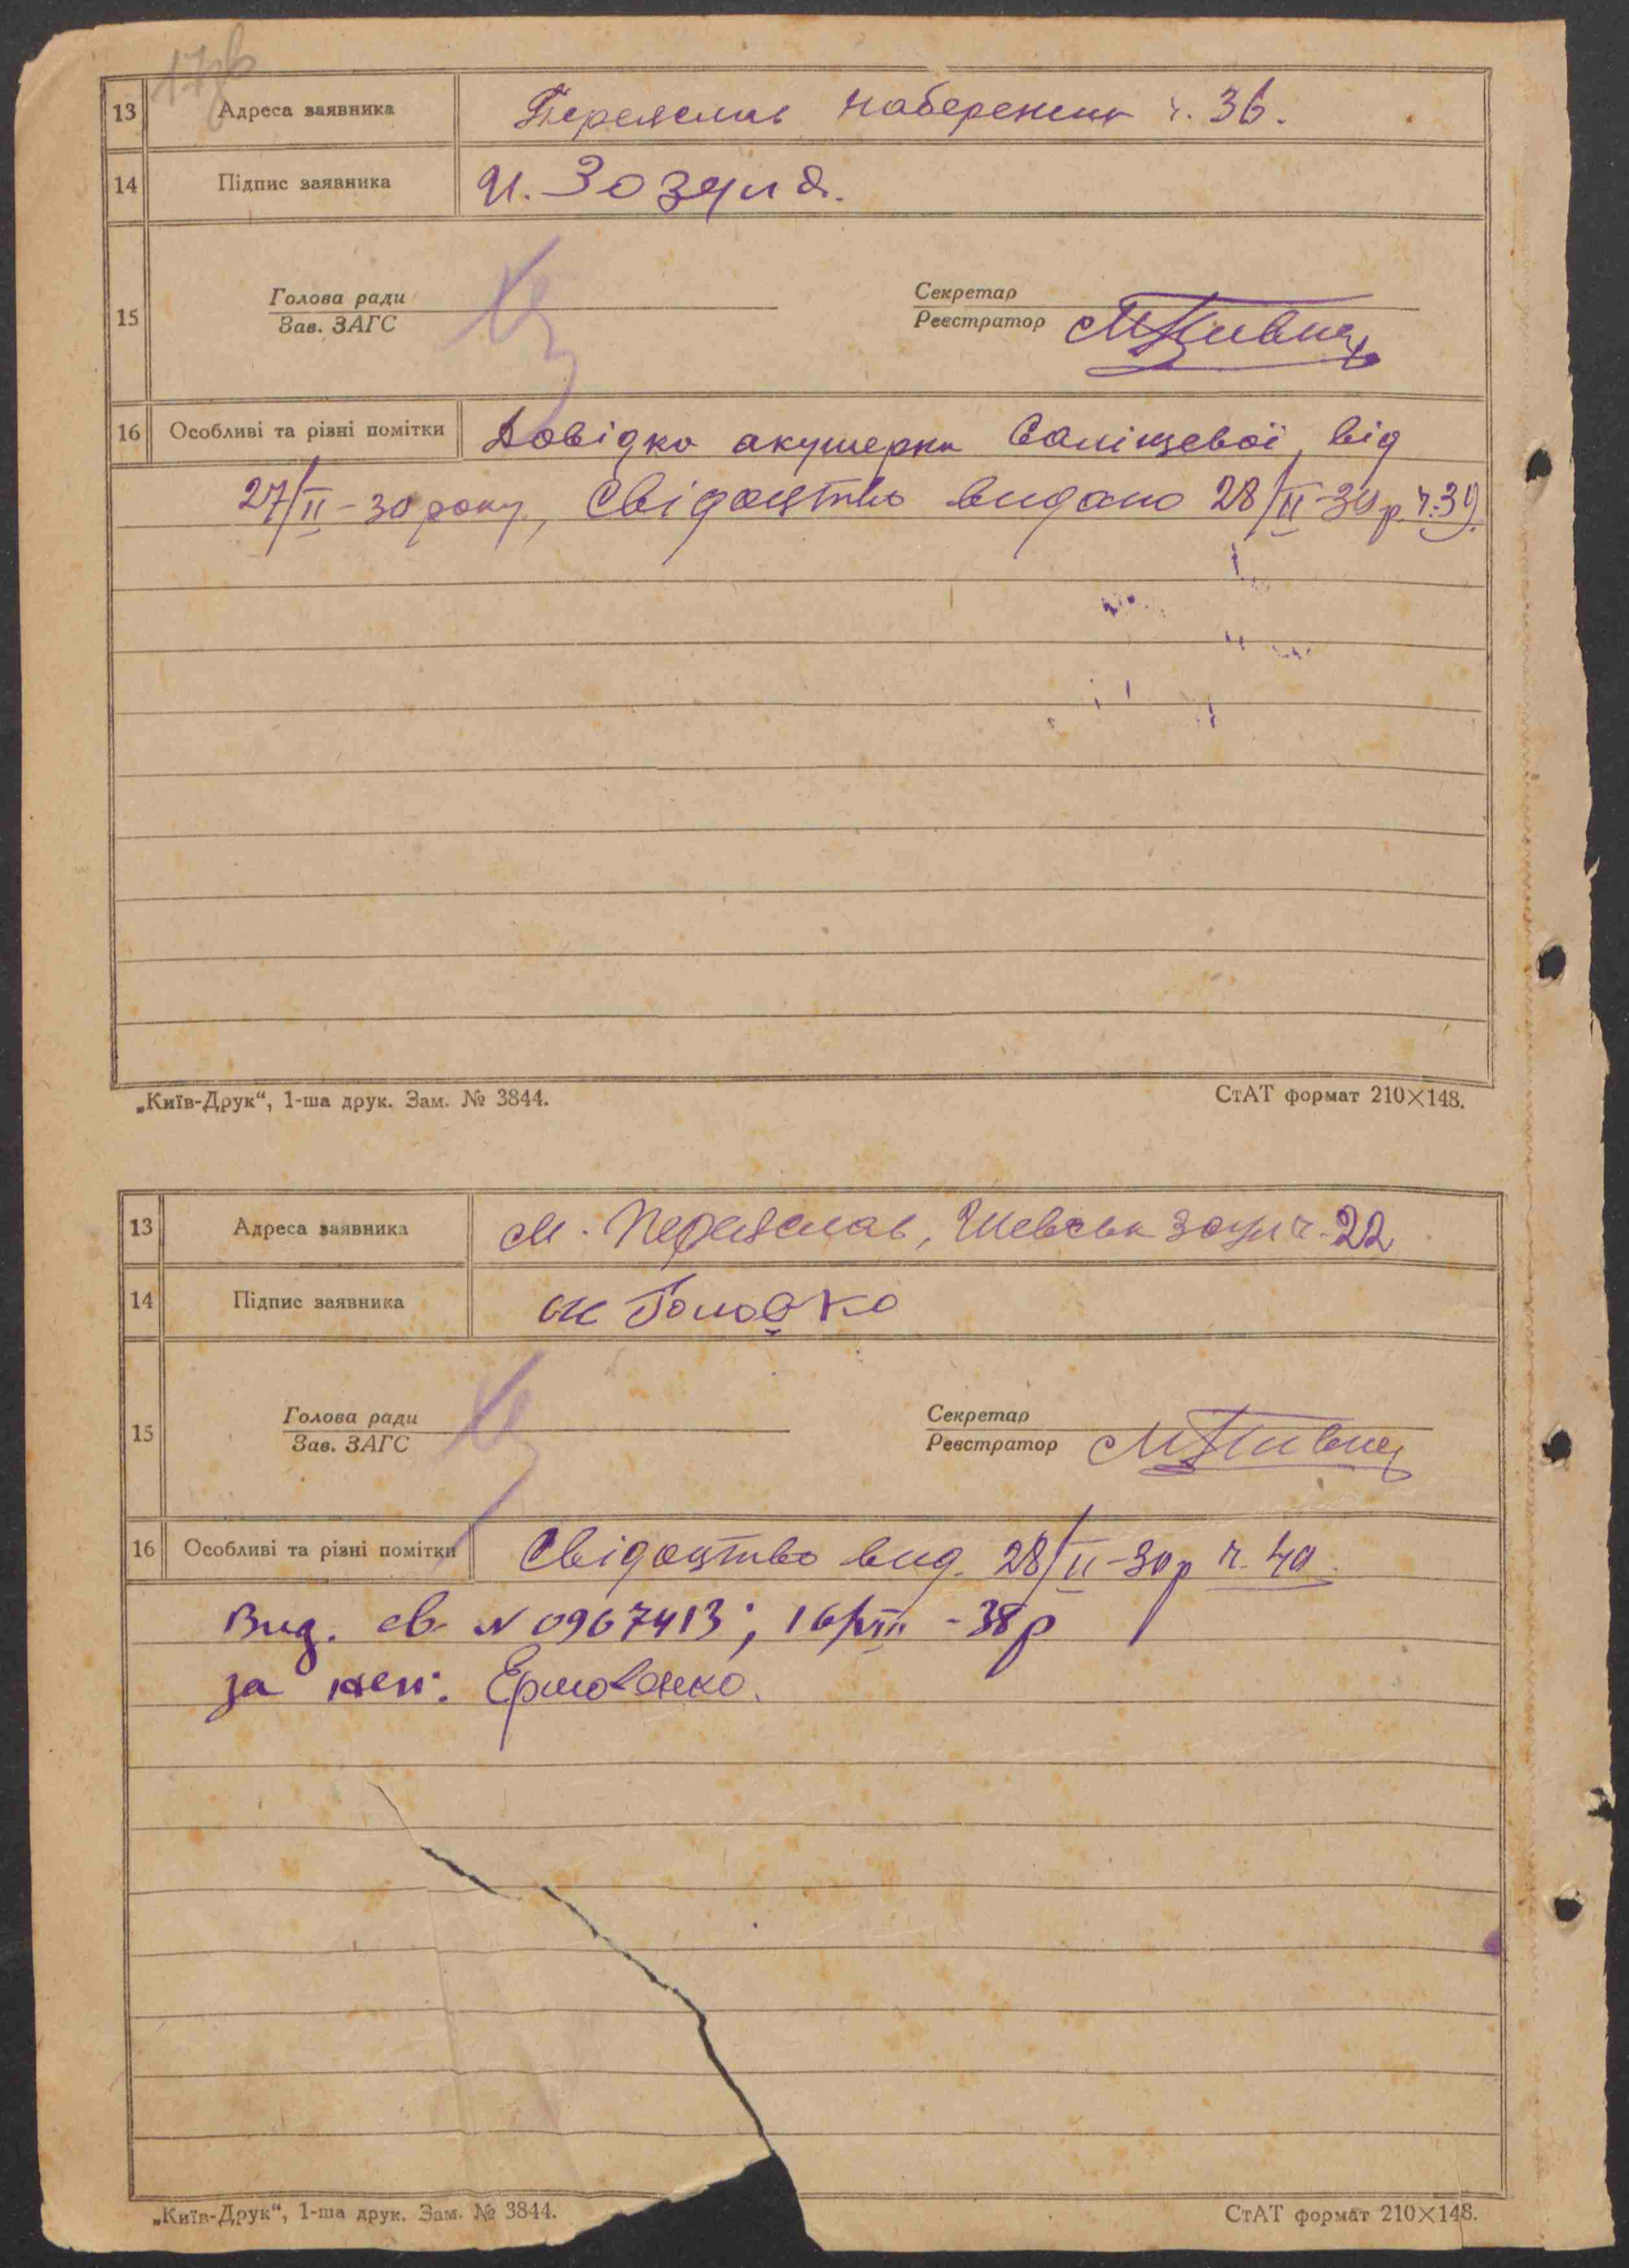 13 Адреса заявника Переяслав Набережна ч. 36.
14 Підпис заявника И. Зозуля.
15 Голова ради Зав. ЗАГС Секретар Реєстратор
16 Особливі та різні помітки Довідка акушерки від
27/II-30 року, Свідоцтво видано 28/II-30 р. ч. 39
„Київ-Друк“, 1-ша друк. Зам. № 3844. СтАТ формат 210×148.
13 Адреса заявника м. Переяслав, ч. 22
14 Підпис заявника Головко
15 Голова ради Зав. ЗАГС Секретар Реєстратор
16 Особливі та різні помітки Свідоцтво вид. 28/II-30 р ч. 40
Вид. св. № 0967413; -38 р
за
„Київ-Друк“, 1-ша друк. Зам. № 3844. СтАТ формат 210×148.